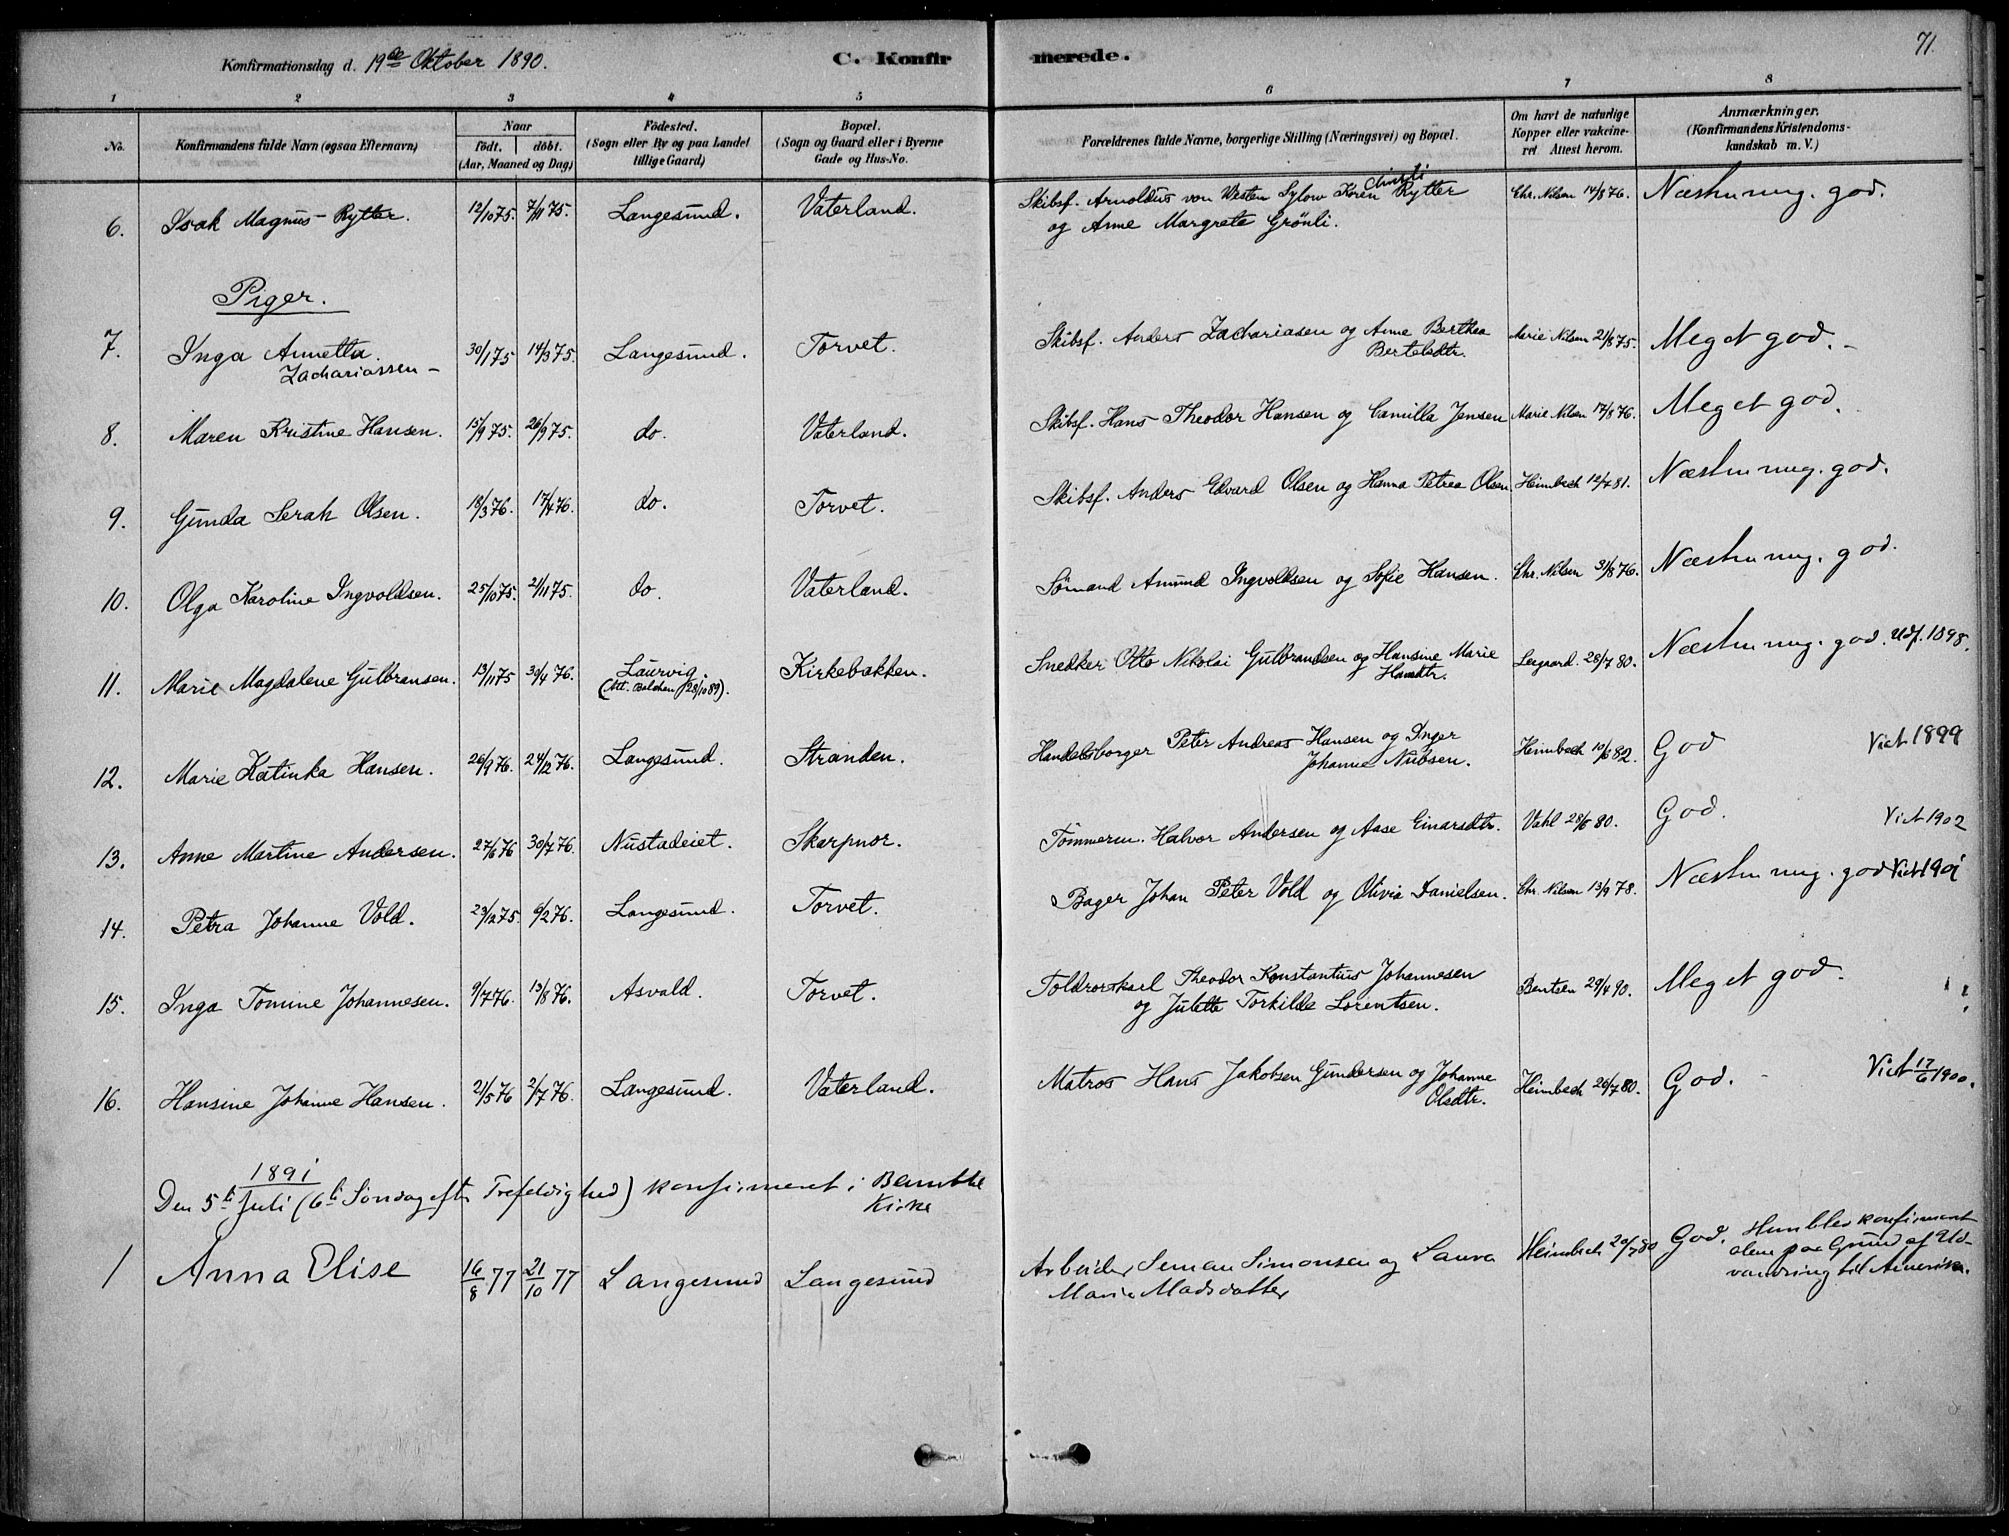 71.
Konfirmationsdag d. 19de Oktober 1890. C. Konfirmerede.
1 2 3 4 5 6 7 8
No. Konfirmandens fulde Navn (ogsaa Efternavn) Naar født. døbt. (Aar, Maaned og Dag) Fødested. (Sogn eller By og paa Landet tillige Gaard) Bopæl. (Sogn og Gaard eller i Byerne Gade og Hus-No. Forældrenes fulde Navne, borgerlige Stilling (Næringsvei) og Bopæl. Om havt de naturlige Kopper eller vakcineret Attest herom. Anmærkninger. (Konfirmandens Kristendomskundskab m. V.)
6. Isak Magnus Rytter. 12/10 75. 7/11 75. Langesund. Vaterland. Skibsf. Arnoldus von Westen Sylow Koren Rytter Chr. Nilsen 14/8 76. Næsten meg. god.
og Anne Margrete Grønli.
Piger.
7. Inga Annetta 30/1 75 14/3 75. Langesund. Torvet. Skibsf. Anders Zachariasen og Anne Berthea Marie Nilsen 21/8 75. Meget god. -
Zachariassen - Bertelsdtr.
8. Maren Kristine Hansen. 15/9 75. 26/9 75. do. Vaterland. Skibsf. Hans Theodor Hansen og Camilla Jensen Marie Nilsen 17/8 76. Meget god.
9. Gunda Serah Olsen. 18/3 76. 17/4 76. do. Torvet. Skibsf. Anders Edvard Olsen og Hanna Petrea Olsen Heimbech 12/7 81. Næsten meg. god.
10. Olga Karoline Ingvoldsen. 25/10 75. 21/11 75. do. Vaterland. Sømand Amund Ingvoldsen og Sofie Hansen. Chr. Nilsen 31/8 76. Næsten meg. god.
11. Marie Magdalene Gulbransen. 13/11 75 30/4 76. Laurvig. Kirkebakken. Snedker Otto Nikolai Gulbrandsen og Hansine Marie 28/7 80. Næsten meg. god. Udf. 1898.
(Att. Balchen 28/10 89). Hansdtr.
12. Marie Katinka Hansen. 26/9 76. 24/12 76. Langesund. Stranden. Handelsborger Peter Andreas Hansen og Inger Heimbech 10/6 82. God Viet 1899
Johanne Nubsen.
13. Anne Martine Andersen. 27/6 76 30/7 76. Nustadeiet. Skarpnor. Tømmerm. Halvor Andersen og Aase Einarsdtr. Vahl 28/6 80. God. Viet 1902
14. Petra Johanne Vold. 23/12 75. 6/2 76. Langesund. Torvet. Bager Johan Peter Vold og Olivia Danielsen. Chr. Nilsen 13/9 78. Næsten meg. god Viet 1901
15. Inga Tomine Johannesen. 9/7 76. 13/8 76. Asvald. Torvet. Toldrorskarl Theodor Konstantius Johannesen Bentsen 29/4 90. Meget god.
og Julette Torkilda Lorentsen.
16. Hansine Johanne Hansen. 21/5 76 2/7 76. Langesund. Vaterland. Matros Hans Jakobsen Gundersen og Johanne Heimbech 26/7 80. God. - Viet 17/6 1900.
Olsdtr.
1891
Den 5te Juli (6te Søndag efter Trefoldighed) konfirmeret i Bamble
Kirke
1 Anna Elise 16/8 77 21/10 77 Langesund Langesund Arbeider Seman Simonsen og Laura Heimbech 20/7 80 God. Hun blev konfirmeret
Marie Madsdatter alene paa Grund af Ud-
vandring til Amerika.